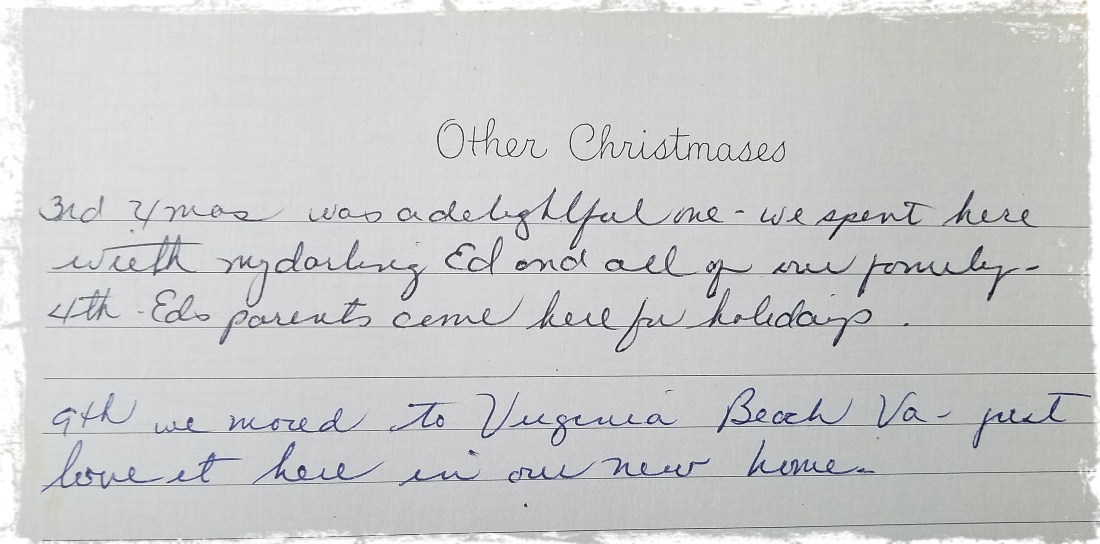 Other Christmases
3rd Xmas was a delightful one - we spent here
with my darling Ed and all of our family -
4th - Eds parents came here for holidays.
9th we moved to Virginia Beach Va - just
love it here in our new home -